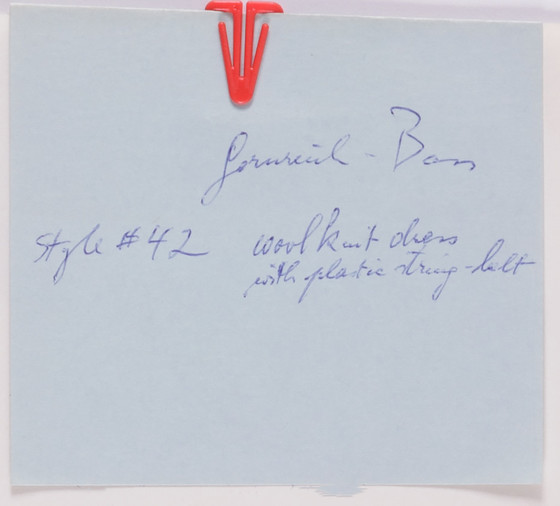 Gernreich - Bass
Style #42 wool knit dress
with plastic string-belt